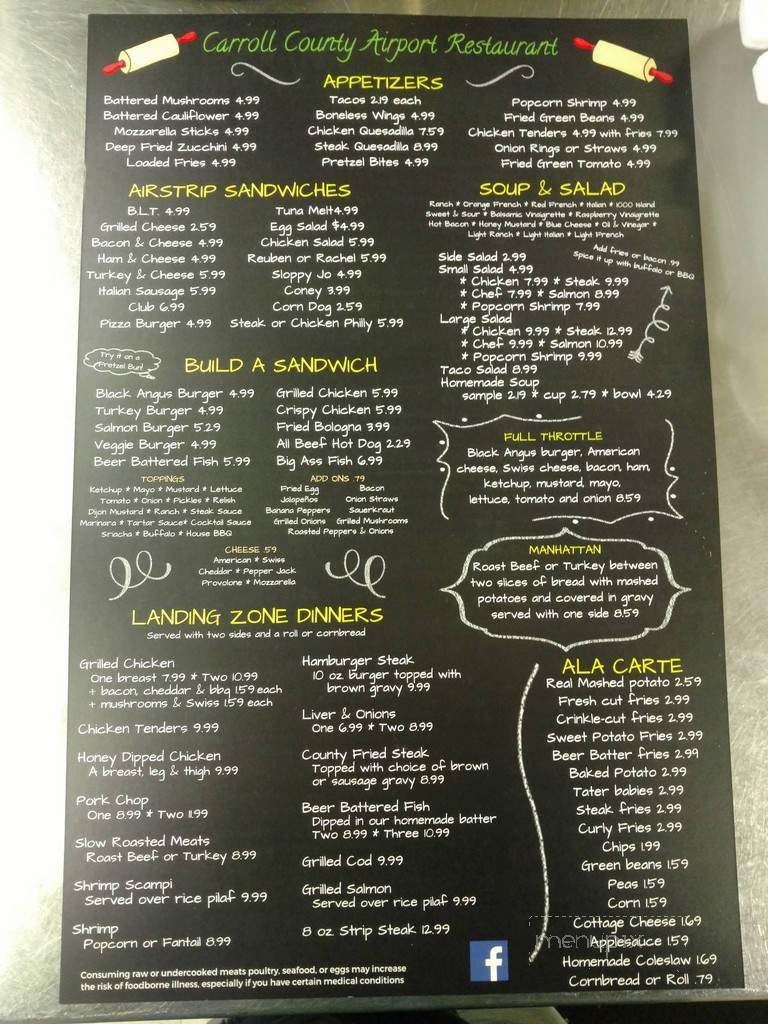 Carroll County Airport Restaurant
APPETIZERS
Battered Mushrooms 4.99
Battered Cauliflower 4.99
Mozzarella Sticks 4.99
Deep Fried Zucchini 4.99
Loaded Fries 4.99
Tacos 2.19 each
Boneless Wings 4.99
Chicken Quesadilla 7.59
Steak Quesadilla 8.99
Pretzel Bites 4.99
Popcorn Shrimp 4.99
Fried Green Beans 4.99
Chicken Tenders 4.99 with fries 7.99
Onion Rings or Straws 4.99
Fried Green Tomato 4.99
AIRSTRIP SANDWICHES
B.L.T. 4.99
Grilled Cheese 2.59
Bacon & Cheese 4.99
Ham & Cheese 4.99
Turkey & Cheese 5.99
Italian Sausage 5.99
Club 6.99
Pizza Burger 4.99
Tuna Melt4.99
Egg Salad $4.99
Chicken Salad 5.99
Reuben or Rachel 5.99
Sloppy Jo 4.99
Coney 3.99
Corn Dog 2.59
Steak or Chicken Philly 5.99
SOUP & SALAD
Ranch * Orange French * Red French * Italian * 1000 Island
Sweet & Sour * Balsamic Vinaigrette * Raspberry Vinaigrette
Hot Bacon * Honey Mustard * Blue Cheese * Oil & Vinegar *
Light Ranch * Light Italian * Light French
Add fries or bacon .99
Spice it up with buffalo or BBQ
Side Salad 2.99
Small Salad 4.99
* Chicken 7.99 * Steak 9.99
* Chef 7.99 * Salmon 8.99
* Popcorn Shrimp 7.99
Large Salad
* Chicken 9.99 * Steak 12.99
* Chef 9.99 * Salmon 10.99
* Popcorn Shrimp 9.99
Taco Salad 8.99
Homemade Soup
sample 2.19 * cup 2.79 * bowl 4.29
Try it on a
Pretzel Bun!
BUILD A SANDWICH
Black Angus Burger 4.99
Turkey Burger 4.99
Salmon Burger 5.29
Veggie Burger 4.99
Beer Battered Fish 5.99
Grilled Chicken 5.99
Crispy Chicken 5.99
Fried Bologna 3.99
All Beef Hot Dog 2.29
Big Ass Fish 6.99
TOPPINGS
Ketchup * Mayo * Mustard * Lettuce
Tomato * Onion * Pickles * Relish
Dijon Mustard * Ranch * Steak Sauce
Marinara * Tartar Sauce* Cocktail Sauce
Sriacha * Buffalo * House BBQ
ADD ONS .79
Fried Egg Bacon
Jalapeños Onion Straws
Banana Peppers Sauerkraut
Grilled Onions Grilled Mushrooms
Roasted Peppers & Onions
CHEESE .59
American * Swiss
Cheddar * Pepper Jack
Provolone * Mozzarella
FULL THROTTLE
Black Angus burger, American
cheese, Swiss cheese, bacon, ham,
ketchup, mustard, mayo,
lettuce, tomato and onion 8.59
MANHATTAN
Roast Beef or Turkey between
two slices of bread with mashed
potatoes and covered in gravy
served with one side 8.59
LANDING ZONE DINNERS
Served with two sides and a roll or cornbread
Grilled Chicken
One breast 7.99 * Two 10.99
+ bacon, cheddar & bbq 1.59 each
+ mushrooms & Swiss 1.59 each
Chicken Tenders 9.99
Honey Dipped Chicken
A breast, leg & thigh 9.99
Pork Chop
One 8.99 * Two 11.99
Slow Roasted Meats
Roast Beef or Turkey 8.99
Shrimp Scampi
Served over rice pilaf 9.99
Shrimp
Popcorn or Fantail 8.99
Hamburger Steak
10 oz burger topped with
brown gravy 9.99
Liver & Onions
One 6.99 * Two 8.99
County Fried Steak
Topped with choice of brown
or sausage gravy 8.99
Beer Battered Fish
Dipped in our homemade batter
Two 8.99 * Three 10.99
Grilled Cod 9.99
Grilled Salmon
Served over rice pilaf 9.99
8 oz Strip Steak 12.99
ALA CARTE
Real Mashed potato 2.59
Fresh cut fries 2.99
Crinkle-cut fries 2.99
Sweet Potato Fries 2.99
Beer Batter fries 2.99
Baked Potato 2.99
Tater babies 2.99
Steak fries 2.99
Curly Fries 2.99
Chips 1.99
Green beans 1.59
Peas 1.59
Corn 1.59
Cottage Cheese 1.69
Applesauce 1.59
Homemade Coleslaw 1.69
Cornbread or Roll .79
f
Consuming raw or undercooked meats poultry, seafood, or eggs may increase
the risk of foodborne illness, especially if you have certain medical conditions